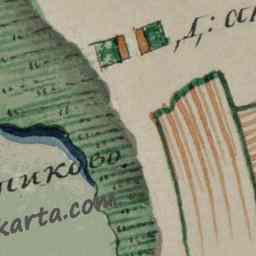 Д: ос
пиково
karta.com